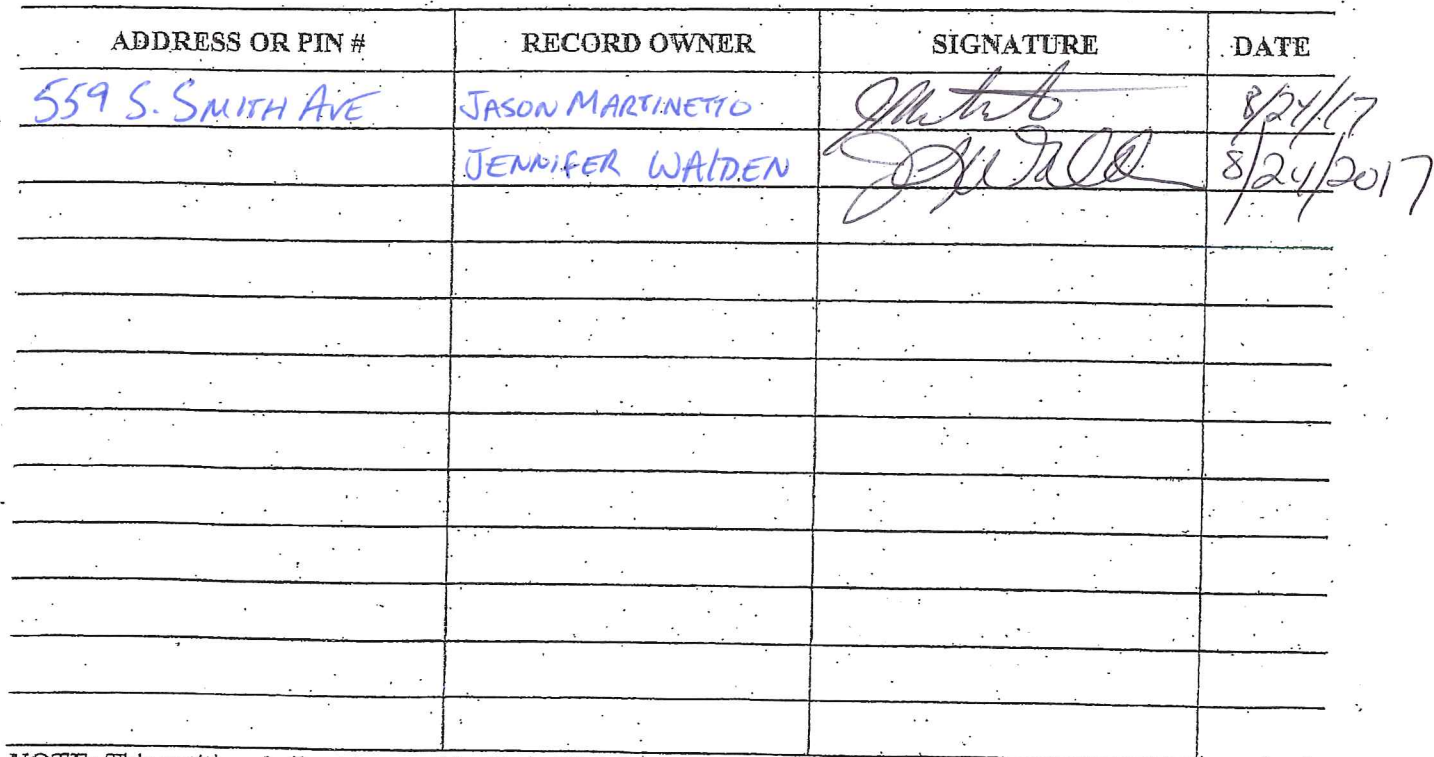 ADDRESS OR PIN # RECORD OWNER SIGNATURE DATE
559 S. SMITH AVE JASON MARTINETTO 8/24/17
JENNIFER WALDEN 8/24/2017